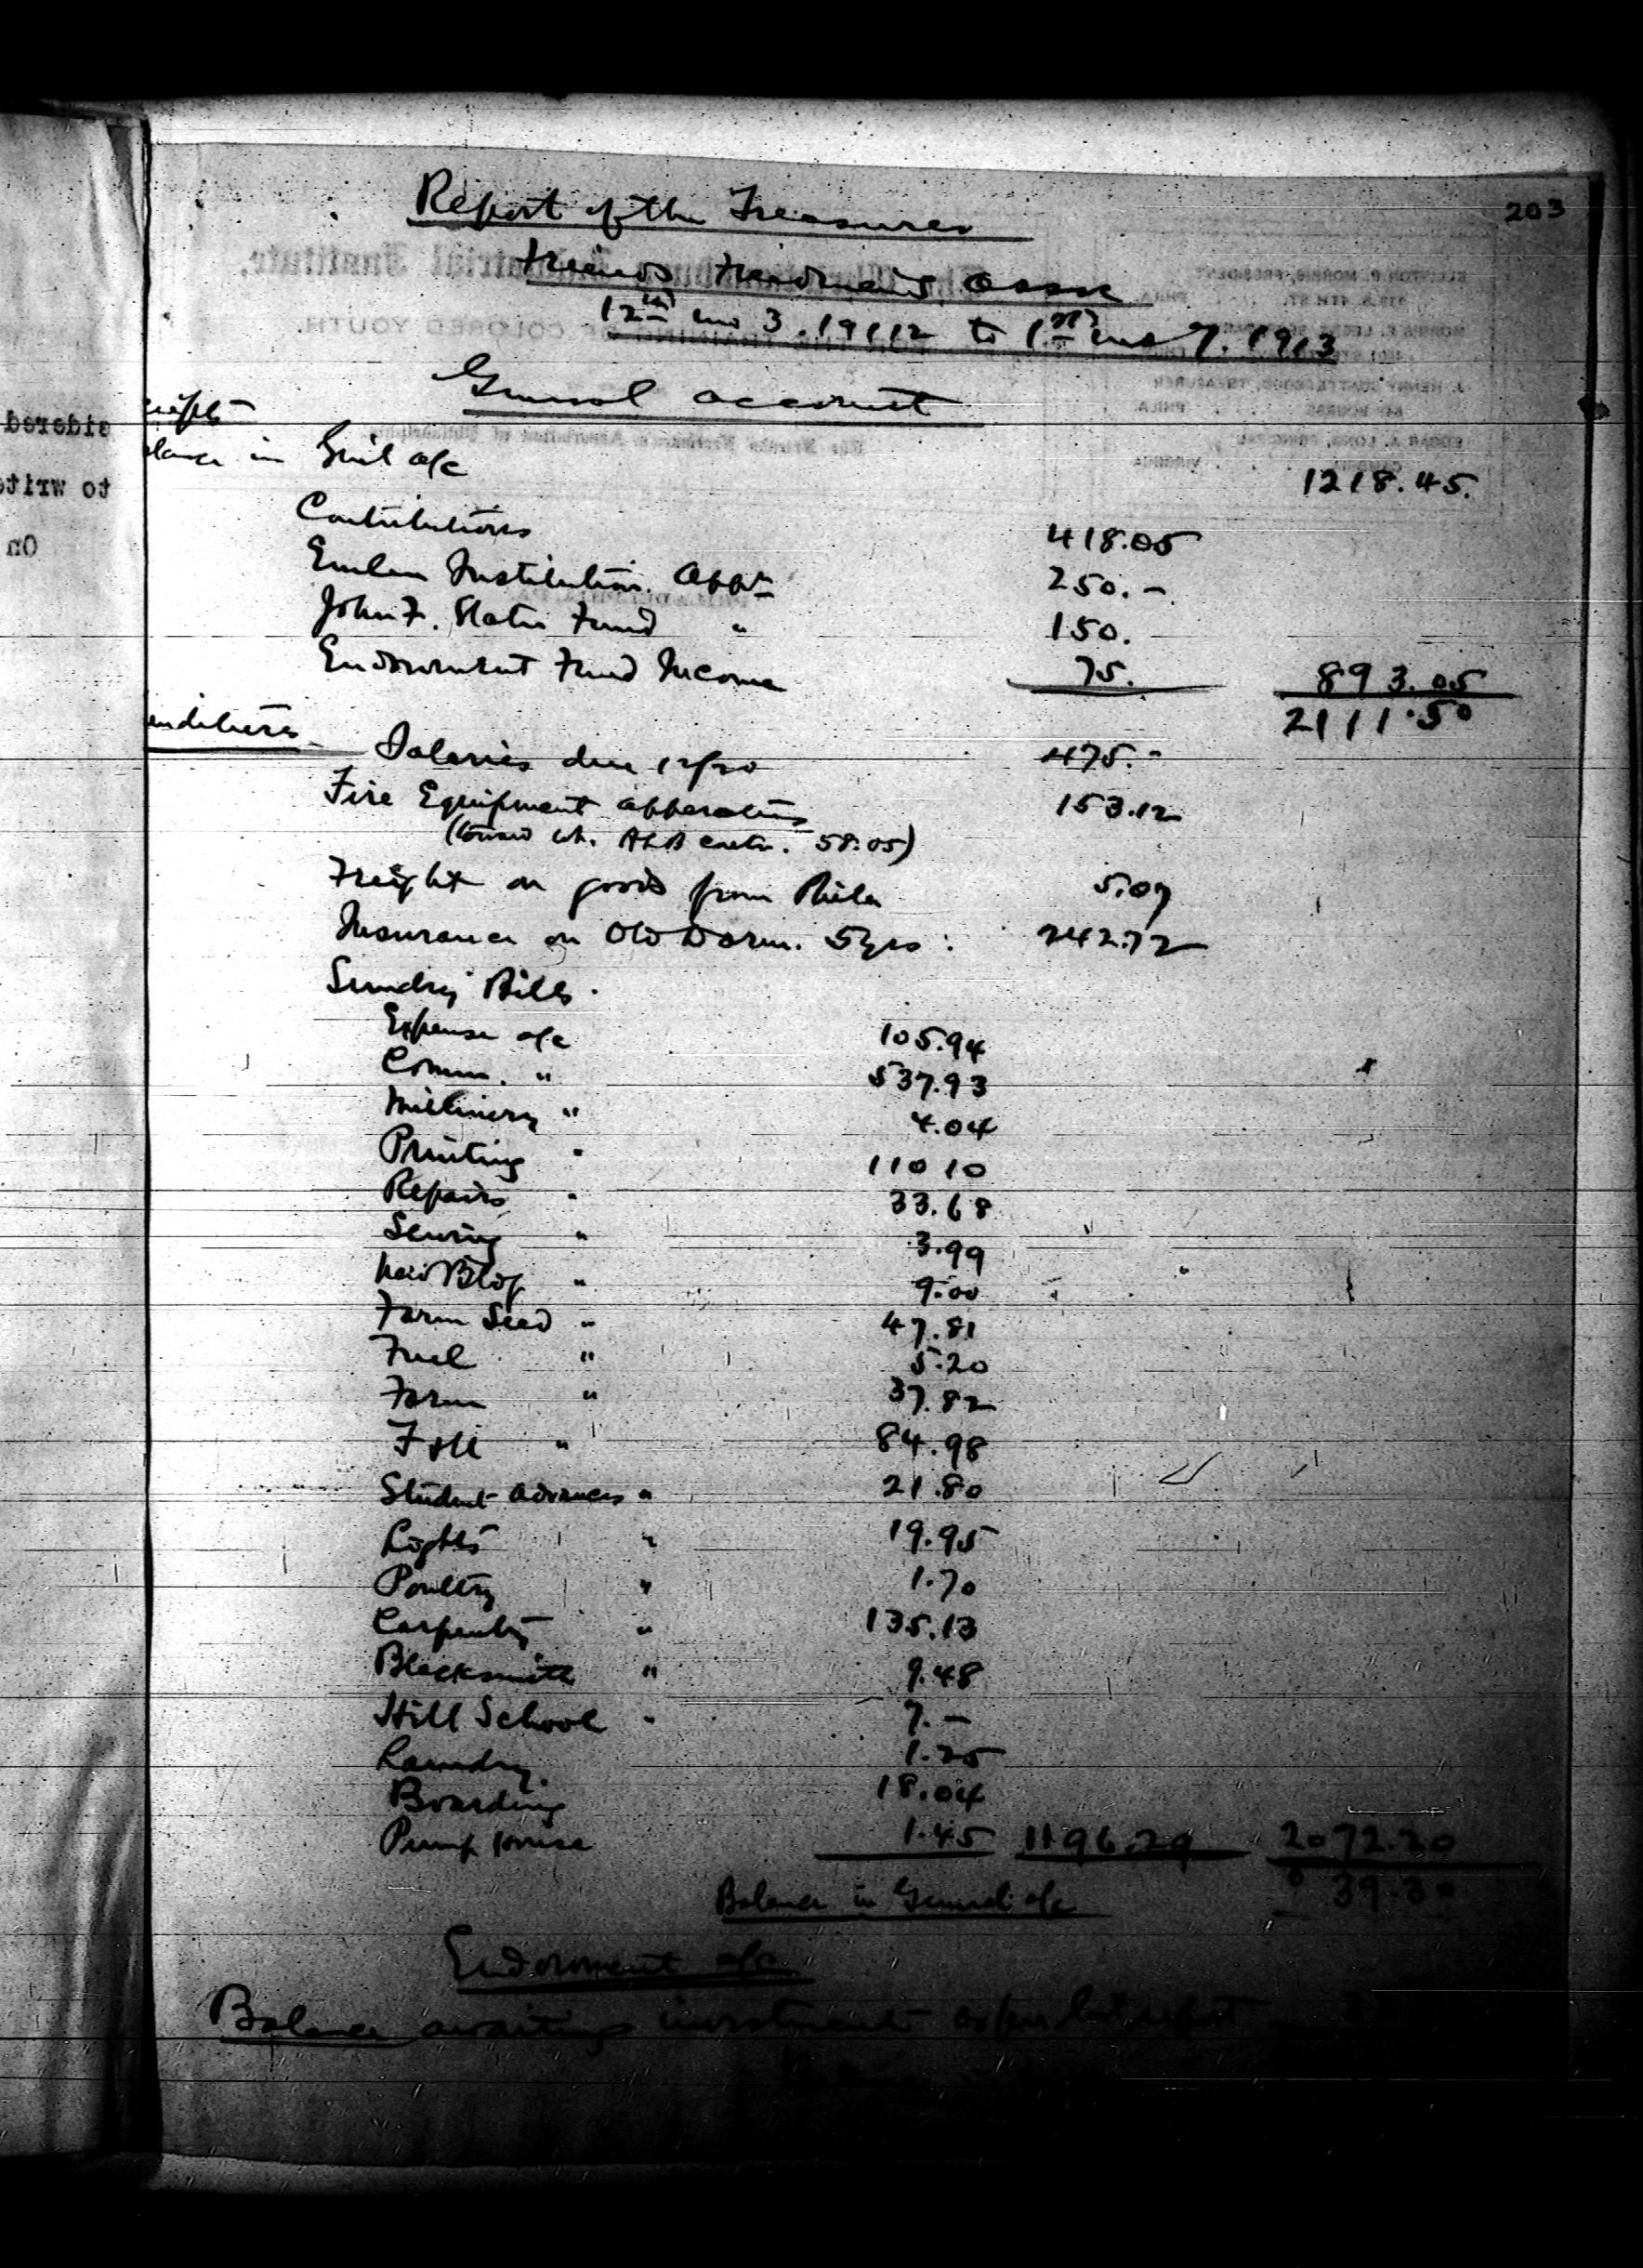 203
Report of the Treasurer
Friends Freedmens Assn
12th mo 3. 19112 to 1st mo 7. 1913
General account
ceipts
lance in Gnl a/c 1218.45.
Contributions 418.05
Emlen Institution. Appn 250.-
John F. Slater Fund " 150.
Endowment Fund Income 75. 893.05
2111.50
enditures
Salaries due 12/20 475.-
Fire Equipment apparatus 153.12
(toward wh. ALB contr. 58.05)
Freight on goods from Phila 5.07
Insurance on Old Dorm. 5 yrs: 242.72
Sundry Bills.
Expense a/c 105.94
Comm. " 537.93
Millinery " 4.04
Printing " 110 10
Repairs " 33.68
Sewing " 3.99
New Bldg " 9.00
Farm Seed " 47.81
Fuel " 5.20
Farm " 37.82
" 84.98
Student Advances " 21.80
Lights " 19.95
Poultry " 1.70
Carpentry " 135.13
Blacksmith " 9.48
Hill School " 7.-
Laundry. 1.25
Boarding 18.04
Pump House 1.45 1196.29 2072.20
Balance in General a/c 39.30
Endowment a/c
Balance awaiting investment as per last report
sidered
to write
On